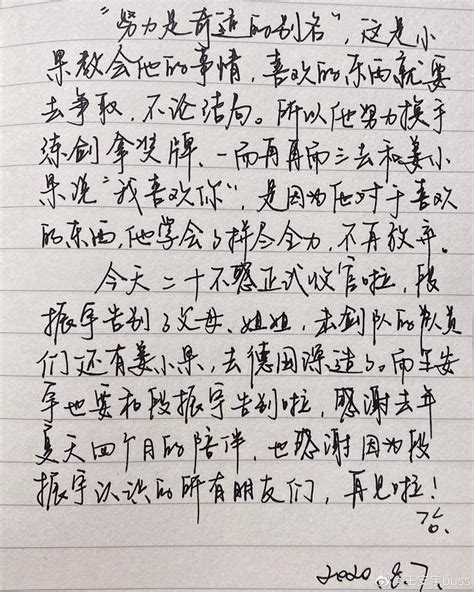 “努力是奇迹的别名”，这是小
果教会他的事情，喜欢的东西就要
去争取，不论结局。所以他努力换手
练剑拿奖牌，一而再再而三去和姜小
果说“我喜欢你”，是因为他对于喜欢
的东西，他学会了拼尽全力，不再放弃。
今天二十不惑正式收官啦，段
振宇告别了父母、姐姐，击剑队的队员
们还有姜小果，去德国深造了。而王安
宇也要和段振宇告别啦，感谢去年
夏天四个月的陪伴，也感谢因为段
振宇认识的所有朋友们，再见啦！
2020.8.7.
buss